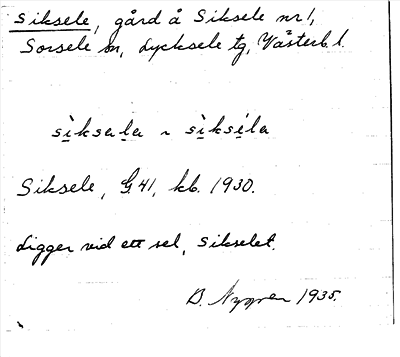 Siksele, gård å Siksele nr 1,
Sorsele sn, Lycksele tg, Västerb. l.
sìksala ~ sìkséla
Siksele, G 41, kb. 1930.
Ligger vid ett sel, Sikselet.
B. Nygren 1935.